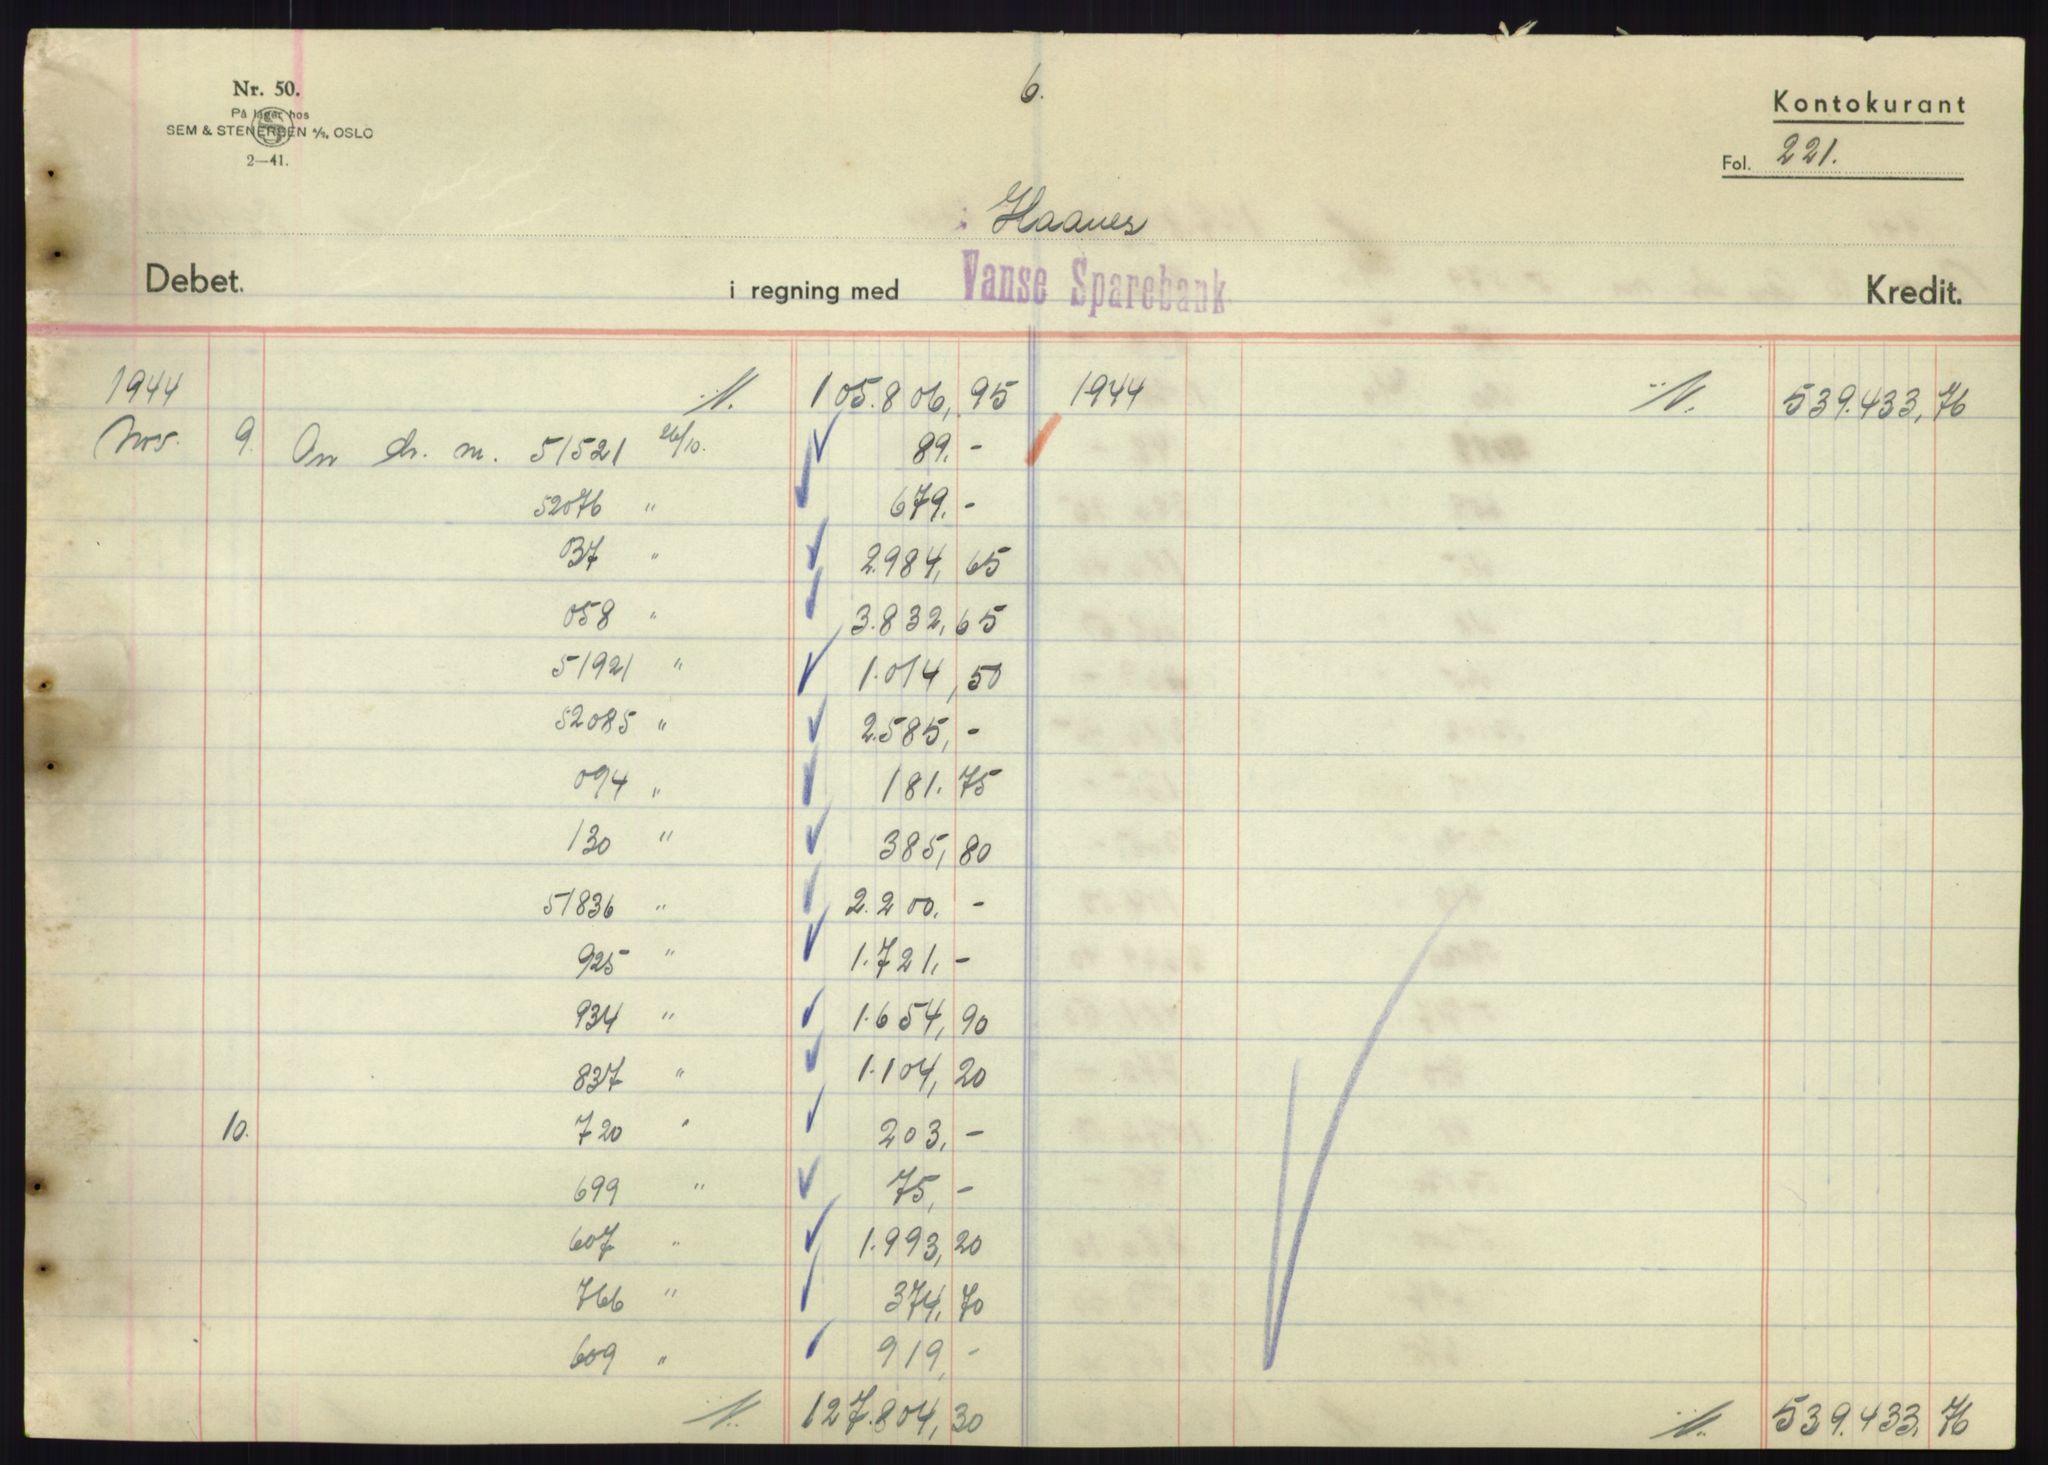 Nr. 50.
På lager hos
SEM & STENERSEN A/S, OSLO
2—41.
6.
Kontokurant
Fol. 221.
Haanes
Debet. i regning med Vanse Sparebank Kredit.
1944 ·/. 105.806,95 1944 ·/. 539.433,76
Nov. 9. An dr. m. 51521 26/10. 89.-
52076 " 679.-
037 " 2.984,65
058 " 3.832,65
51921 " 1.014,50
52085 " 2.585,-
094 " 181.75
130 " 385,80
51836 " 2.200.-
925 " 1.721,-
934 " 1.654,90
837 " 1.104,20
10. 720 " 203,-
699 " 75,-
607 " 1.993,20
766 " 374,70
609 " 919,-
·/. 127.804,30 ·/. 539.433,76